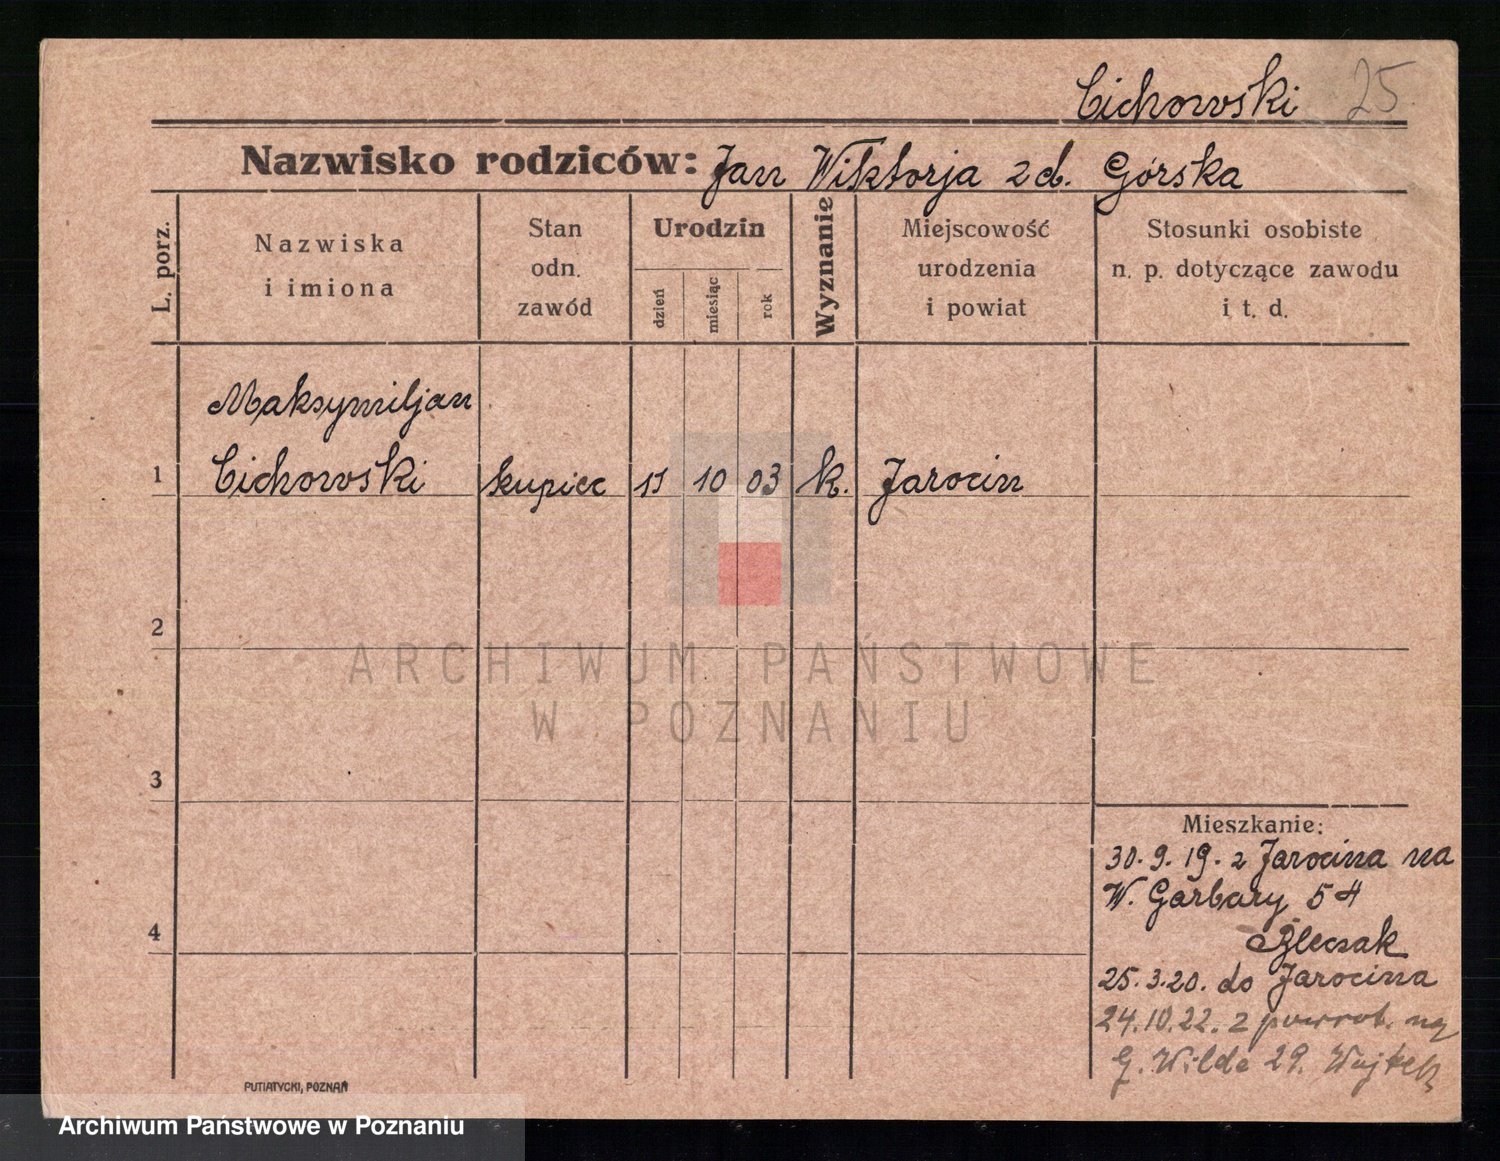 Cichowski 25.
Nazwisko rodziców: Jan Wiktorja z d. Górska
L. porz.
Nazwiska
i imiona
Stan
odn.
zawód
Urodzin
dzień
miesiąc
rok
Wyznanie
Miejscowość
urodzenia
i powiat
Stosunki osobiste
n. p. dotyczące zawodu
i t. d.
Maksymiljan
1 Cichowski kupiec 11 10 03 k. Jarocin
2
ARCHIWUM PAŃSTWOWE
W POZNANIU
3
Mieszkanie:
30.9.19. z Jarocina na
W. Garbary 54
4
25.3.20. do Jarocina
24.10.22. z powrot. na
G. Wilda 29.
PUTIATYCKI, POZNAŃ
Archiwum Państwowe w Poznaniu